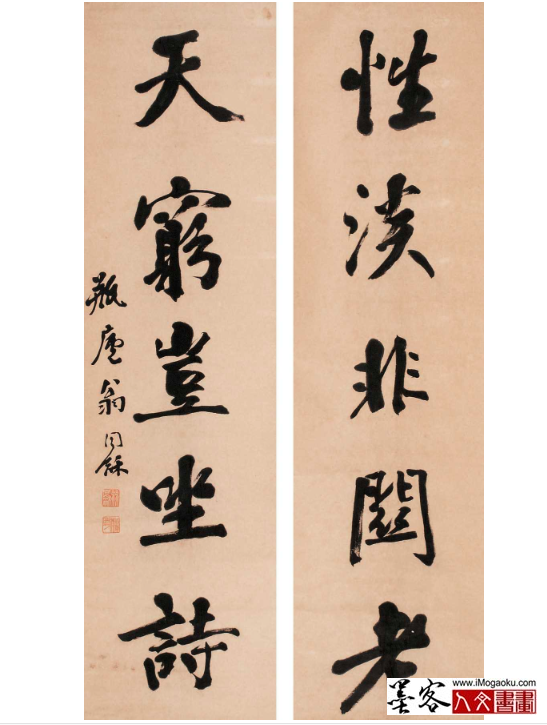 性淡非關老
天窮豈坐詩
瓶廬翁同龢
www.iMogaoku.com
墨客
人文書畫